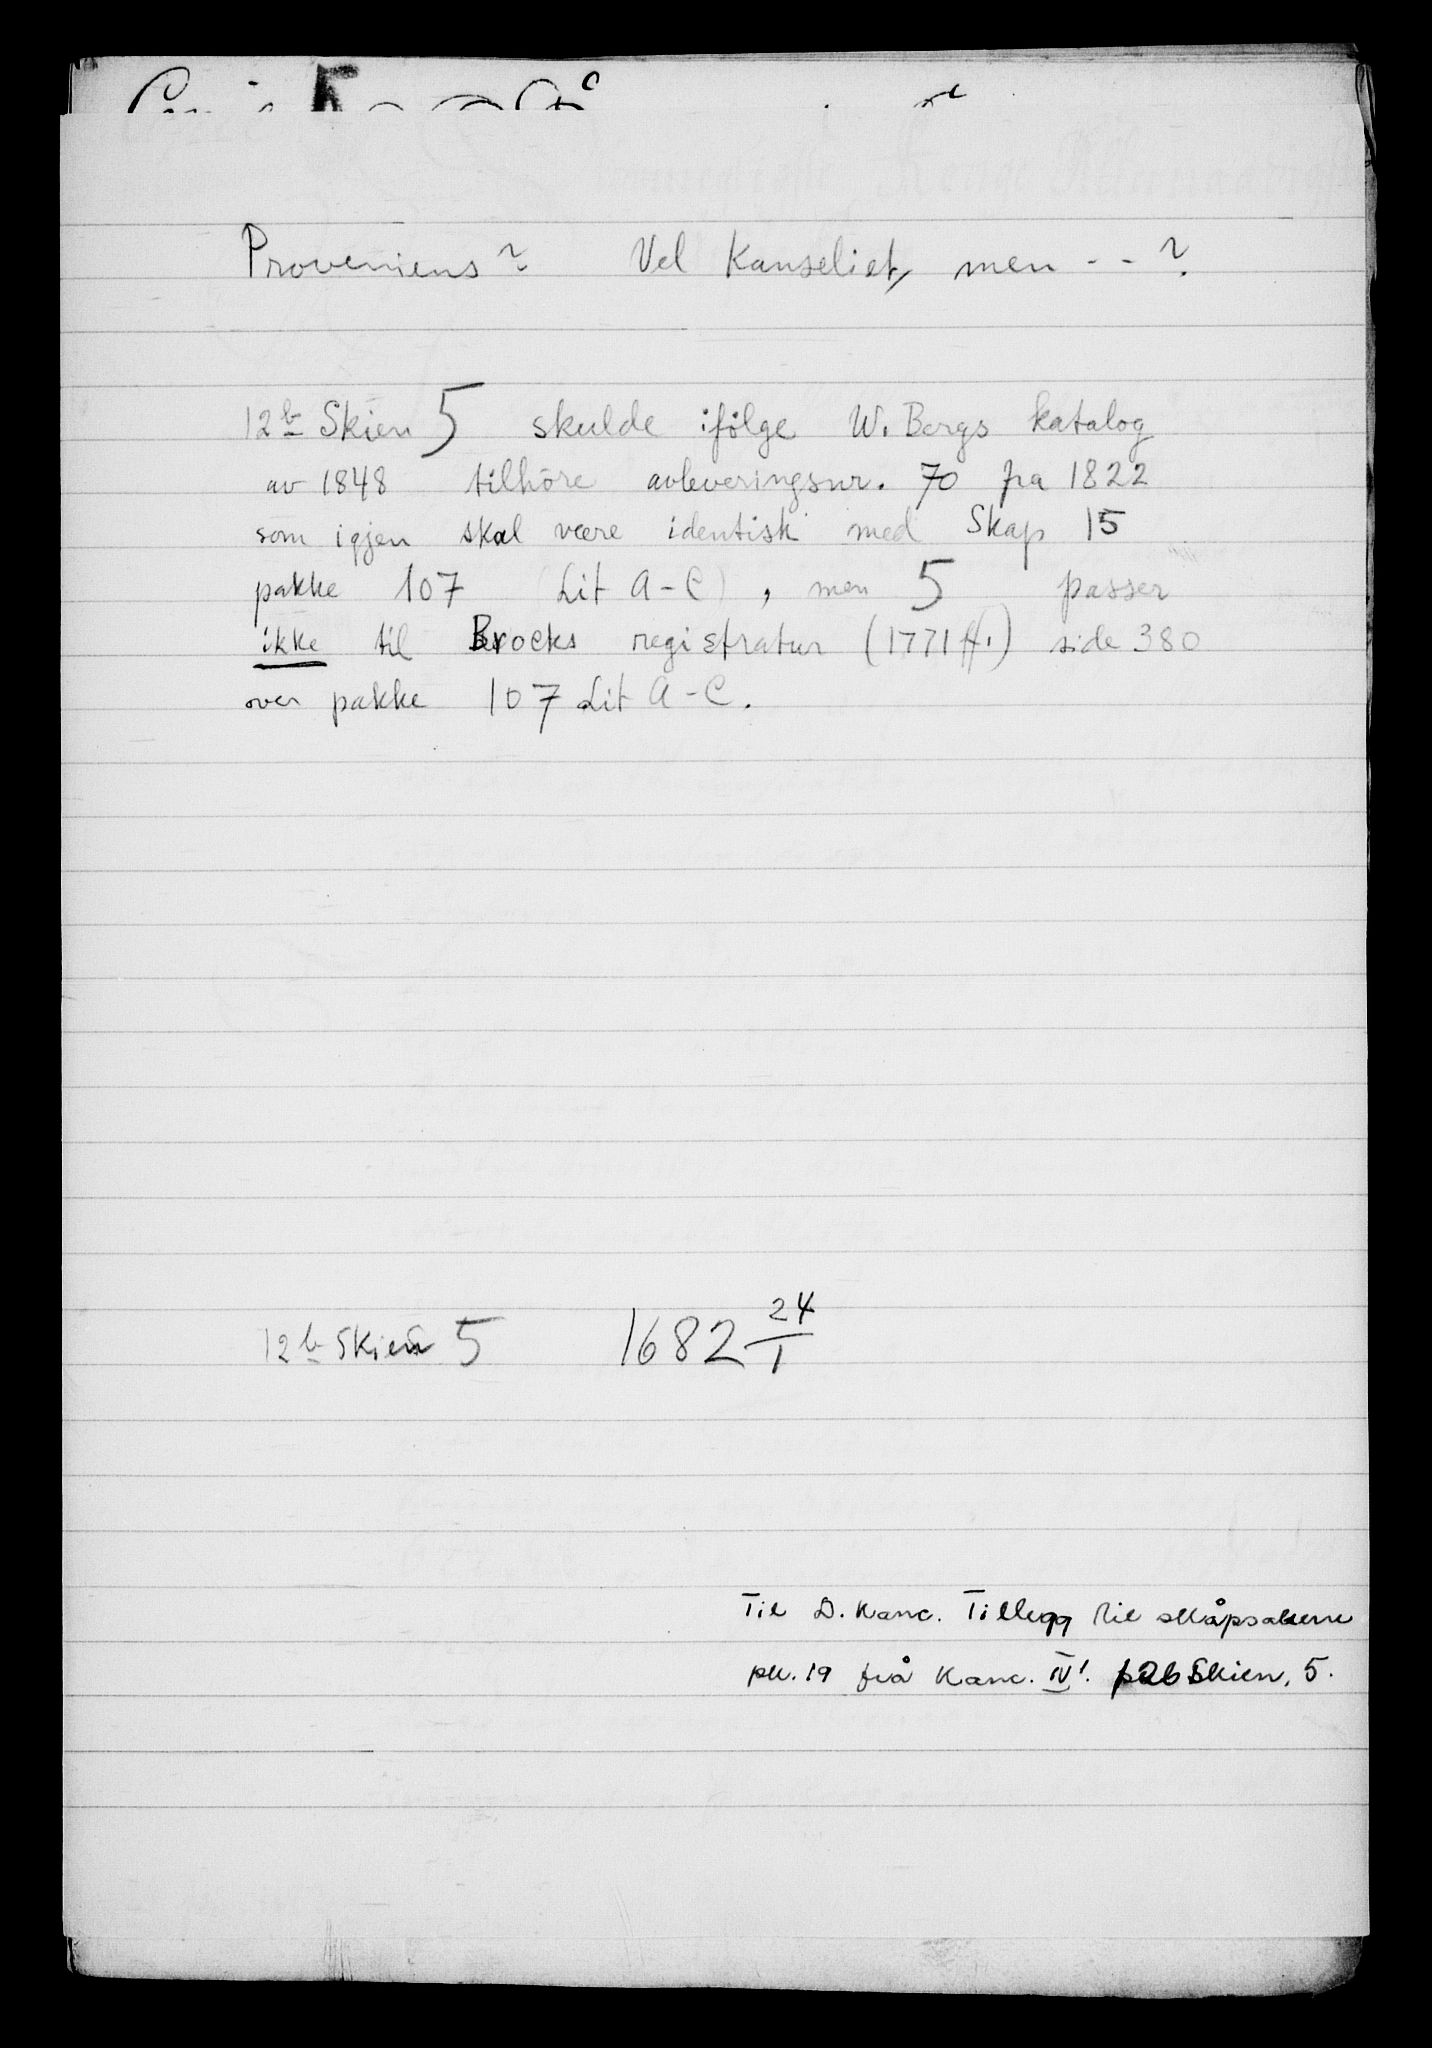 5
Proveniens? Vel Kanseliet, men - - ?
12b Skien 5 skulde ifölge W. Bergs katalog
av 1848 tilhöre avleveringsnr. 70 fra 1822
som igjen skal være identisk med Skap 15
pakke 107 (Lit A-C), men 5 passer
ikke til Brocks registratur (1771 ff.) side 380
over pakke 107 Lit A-C.
12b Skien 5 1682 24/1
Til D. Kanc. Tillegg til skåpsakene
pk. 19 frå Kanc. IV'. 12b Skien, 5.